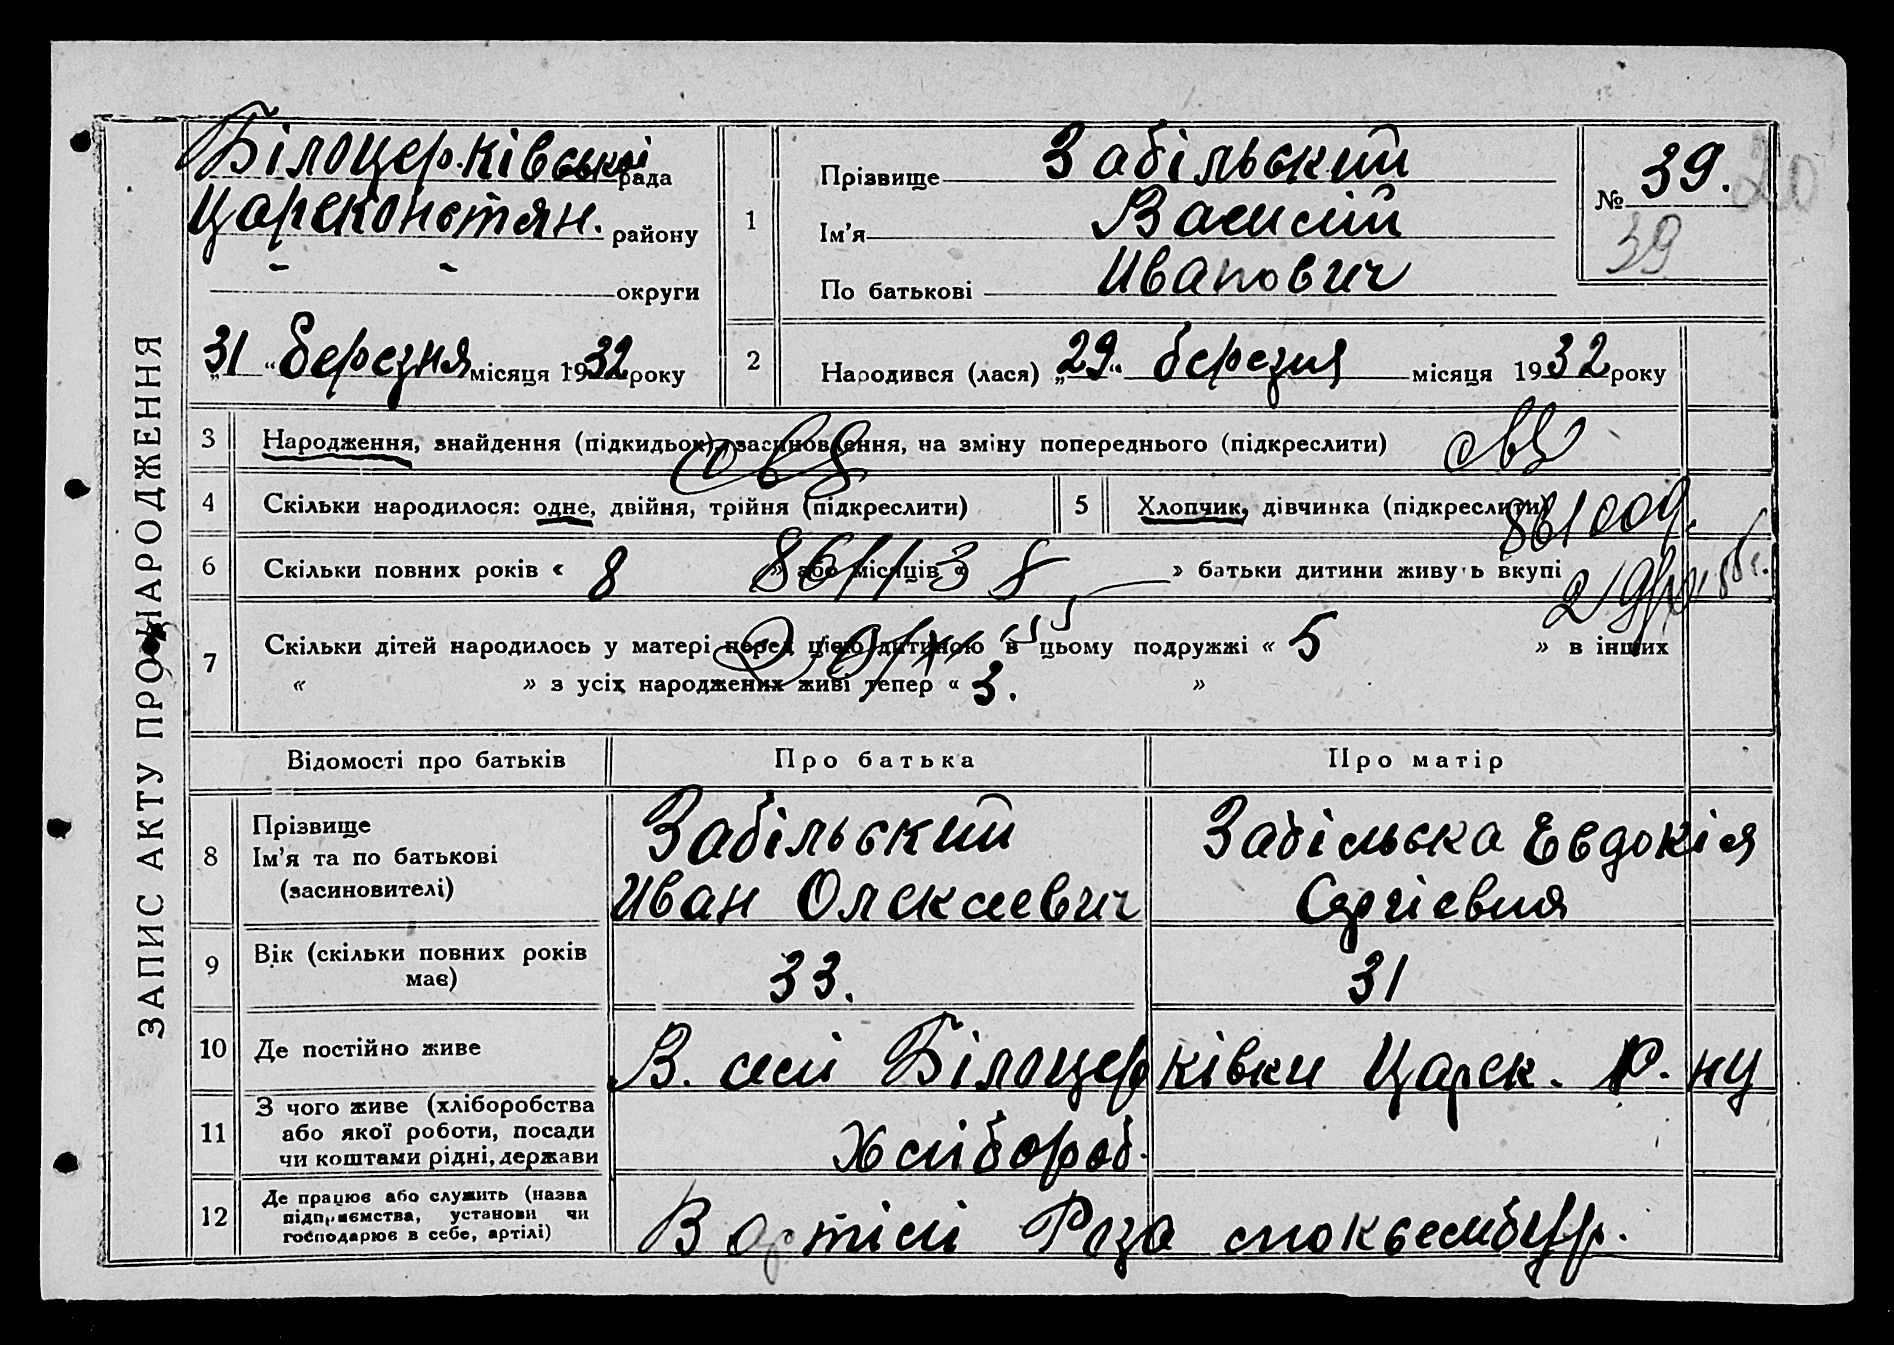 ЗАПИС АКТУ ПРО НАРОДЖЕННЯ
Білоцерківської рада
Цареконстян. району
округи
31 березня місяця 1932 року
1
Прізвище Забільский
Ім'я Василій
По батькові Иванович
№ 39. 20
39
2
Народився (лася) „29“ березня місяця 1932 року
3 Народження, знайдення (підкидьок), засиновлення, на зміну попереднього (підкреслити)
4 Скільки народилося: одне, двійня, трійня (підкреслити)
5 Хлопчик, дівчинка (підкреслити)
6 Скільки повних років « 8 » або місяців « » батьки дитини живуть вкупі
7 Скільки дітей народилось у матері перед цією дитиною в цьому подружжі « 5 » в інших
« » з усіх народжених живі тепер « 3. »
Відомості про батьків Про батька Про матір
8 Прізвище
Ім'я та по батькові
(засиновителі)
Забільский
Иван Олексеевич
Забільска Евдокія
Сергіевня
9 Вік (скільки повних років має) 33. 31
10 Де постійно живе В. селі Білоцерківки Царек. р.ну
11 З чого живе (хліборобства
або якої роботи, посади
чи коштами рідні, держави
Хлібороб.
12 Де працює або служить (назва
підприємства, установи чи
господарює в себе, артілі)
В артілі Роза